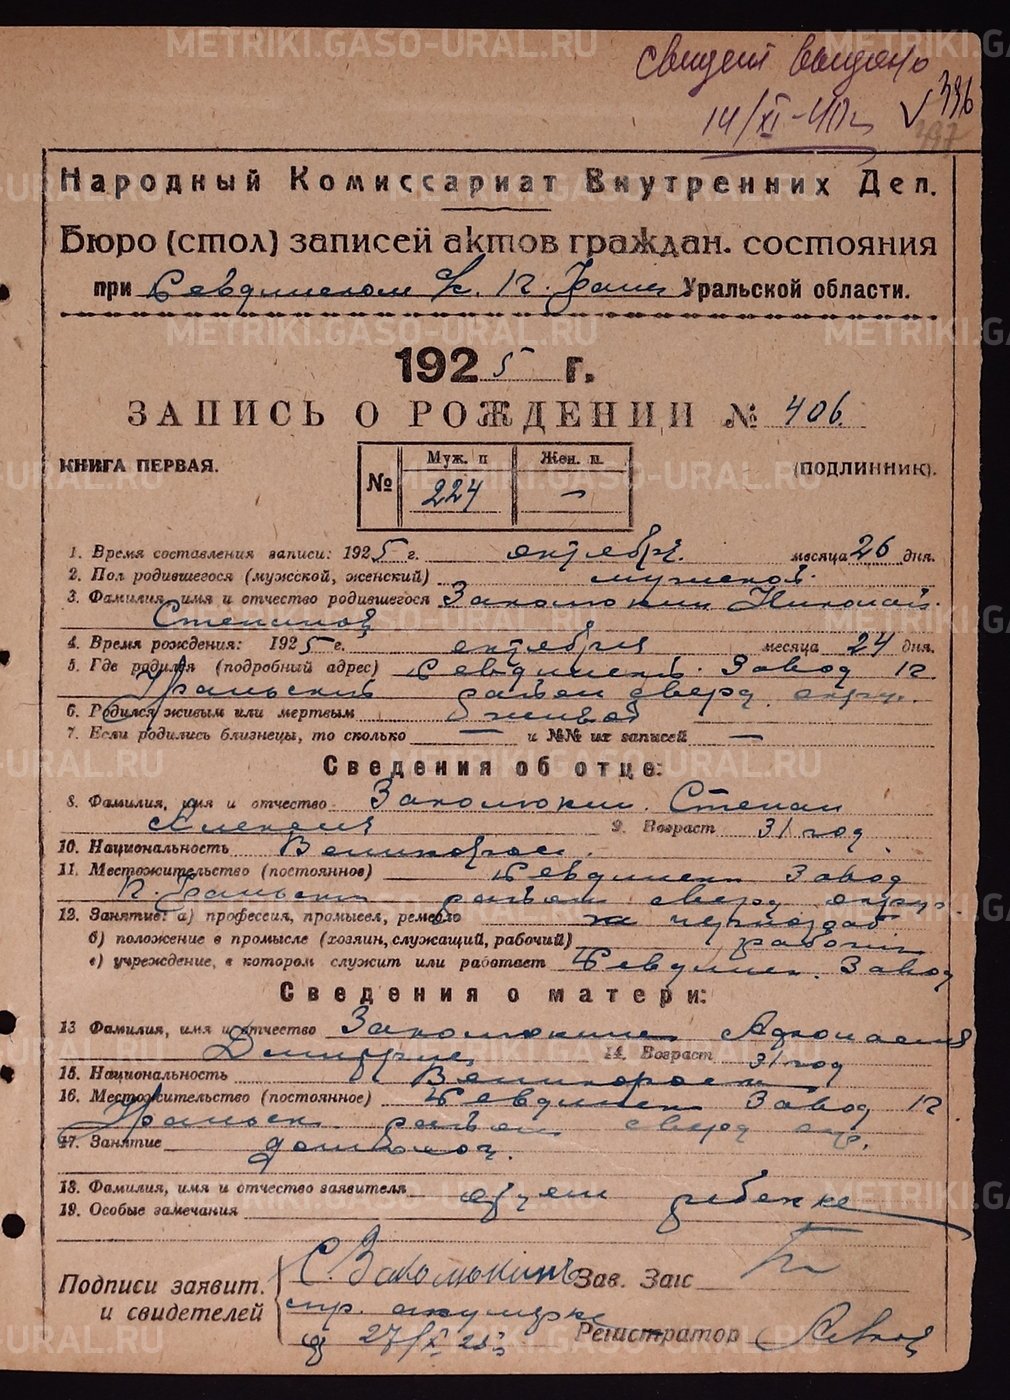 METRIKI.GASO-URAL.RU
выдано
14/XI-40г
396
Народный Комиссариат Внутренних Дел.
Бюро (стол) записей актов граждан. состояния
при Уральской области.
1925 г.
ЗАПИСЬ О РОЖДЕНИИ № 406.
КНИГА ПЕРВАЯ.
(ПОДЛИННИК).
№ Муж. п Жен. п.
224 —
1. Время составления записи: 1925 г. октября месяца 26 дня.
2. Пол родившегося (мужской, женский) мужской.
3. Фамилия, имя и отчество родившегося Закомокин Николай
Степанов
4. Время рождения: 1925 г. октября месяца 24 дня.
5. Где родился (подробный адрес) Завод
Уральский район сверд. окру.
6. Родился живым или мертвым живой
7. Если родились близнецы, то сколько — и №№ их записей —
Сведения об отце:
8. Фамилия, имя и отчество Закомокин. Степан
Алексея 9. Возраст 31 год
10. Национальность Великоросс.
11. Местожительство (постоянное) Завод
сверд. окру.
12. Занятие: а) профессия, промысел, ремесло
б) положение в промысле (хозяин, служащий, рабочий) рабочий
в) учреждение, в котором служит или работает Завод
Сведения о матери:
13 Фамилия, имя и отчество Закомокина
Дмитрие 14. Возраст 31 год
15. Национальность Великоросс
16. Местожительство (постоянное) Завод
Уральск. сверд окр.
17. Занятие домохоз.
18. Фамилия, имя и отчество заявителя отцом ребенка
19. Особые замечания
Подписи заявит. и свидетелей
С. Закомокинъ
пр. акушерки
27/X 25
Зав. Загс
Регистратор